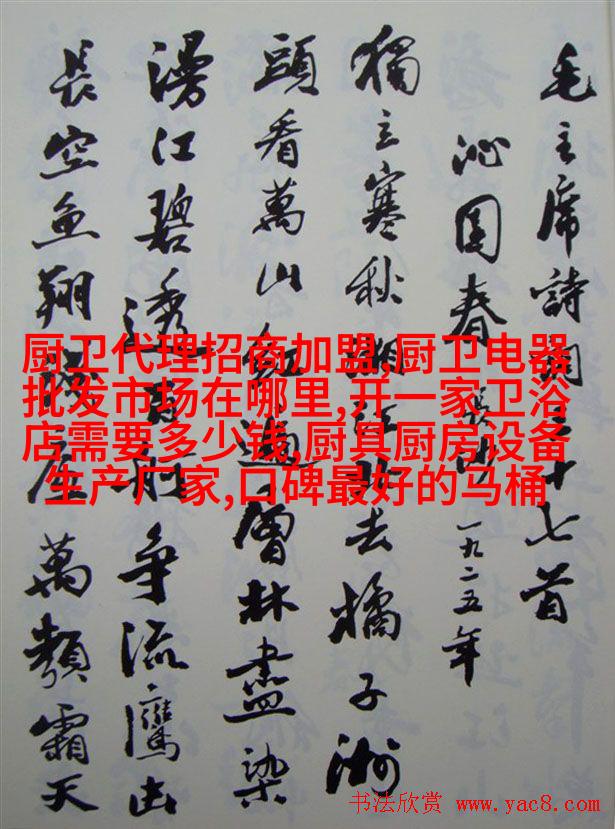 毛主席詩詞三十七首
沁園春 長沙 一九二五年
獨立寒秋湘江北去橘子洲
頭看萬山紅遍層林盡染
漫江碧透百舸争流鷹击
長空魚翔浅底萬類霜天
厨卫代理招商加盟,厨卫电器
批发市场在哪里,开一家卫浴
店需要多少钱,厨具厨房设备
生产厂家,口碑最好的马桶
书法欣赏 www.yac8.com